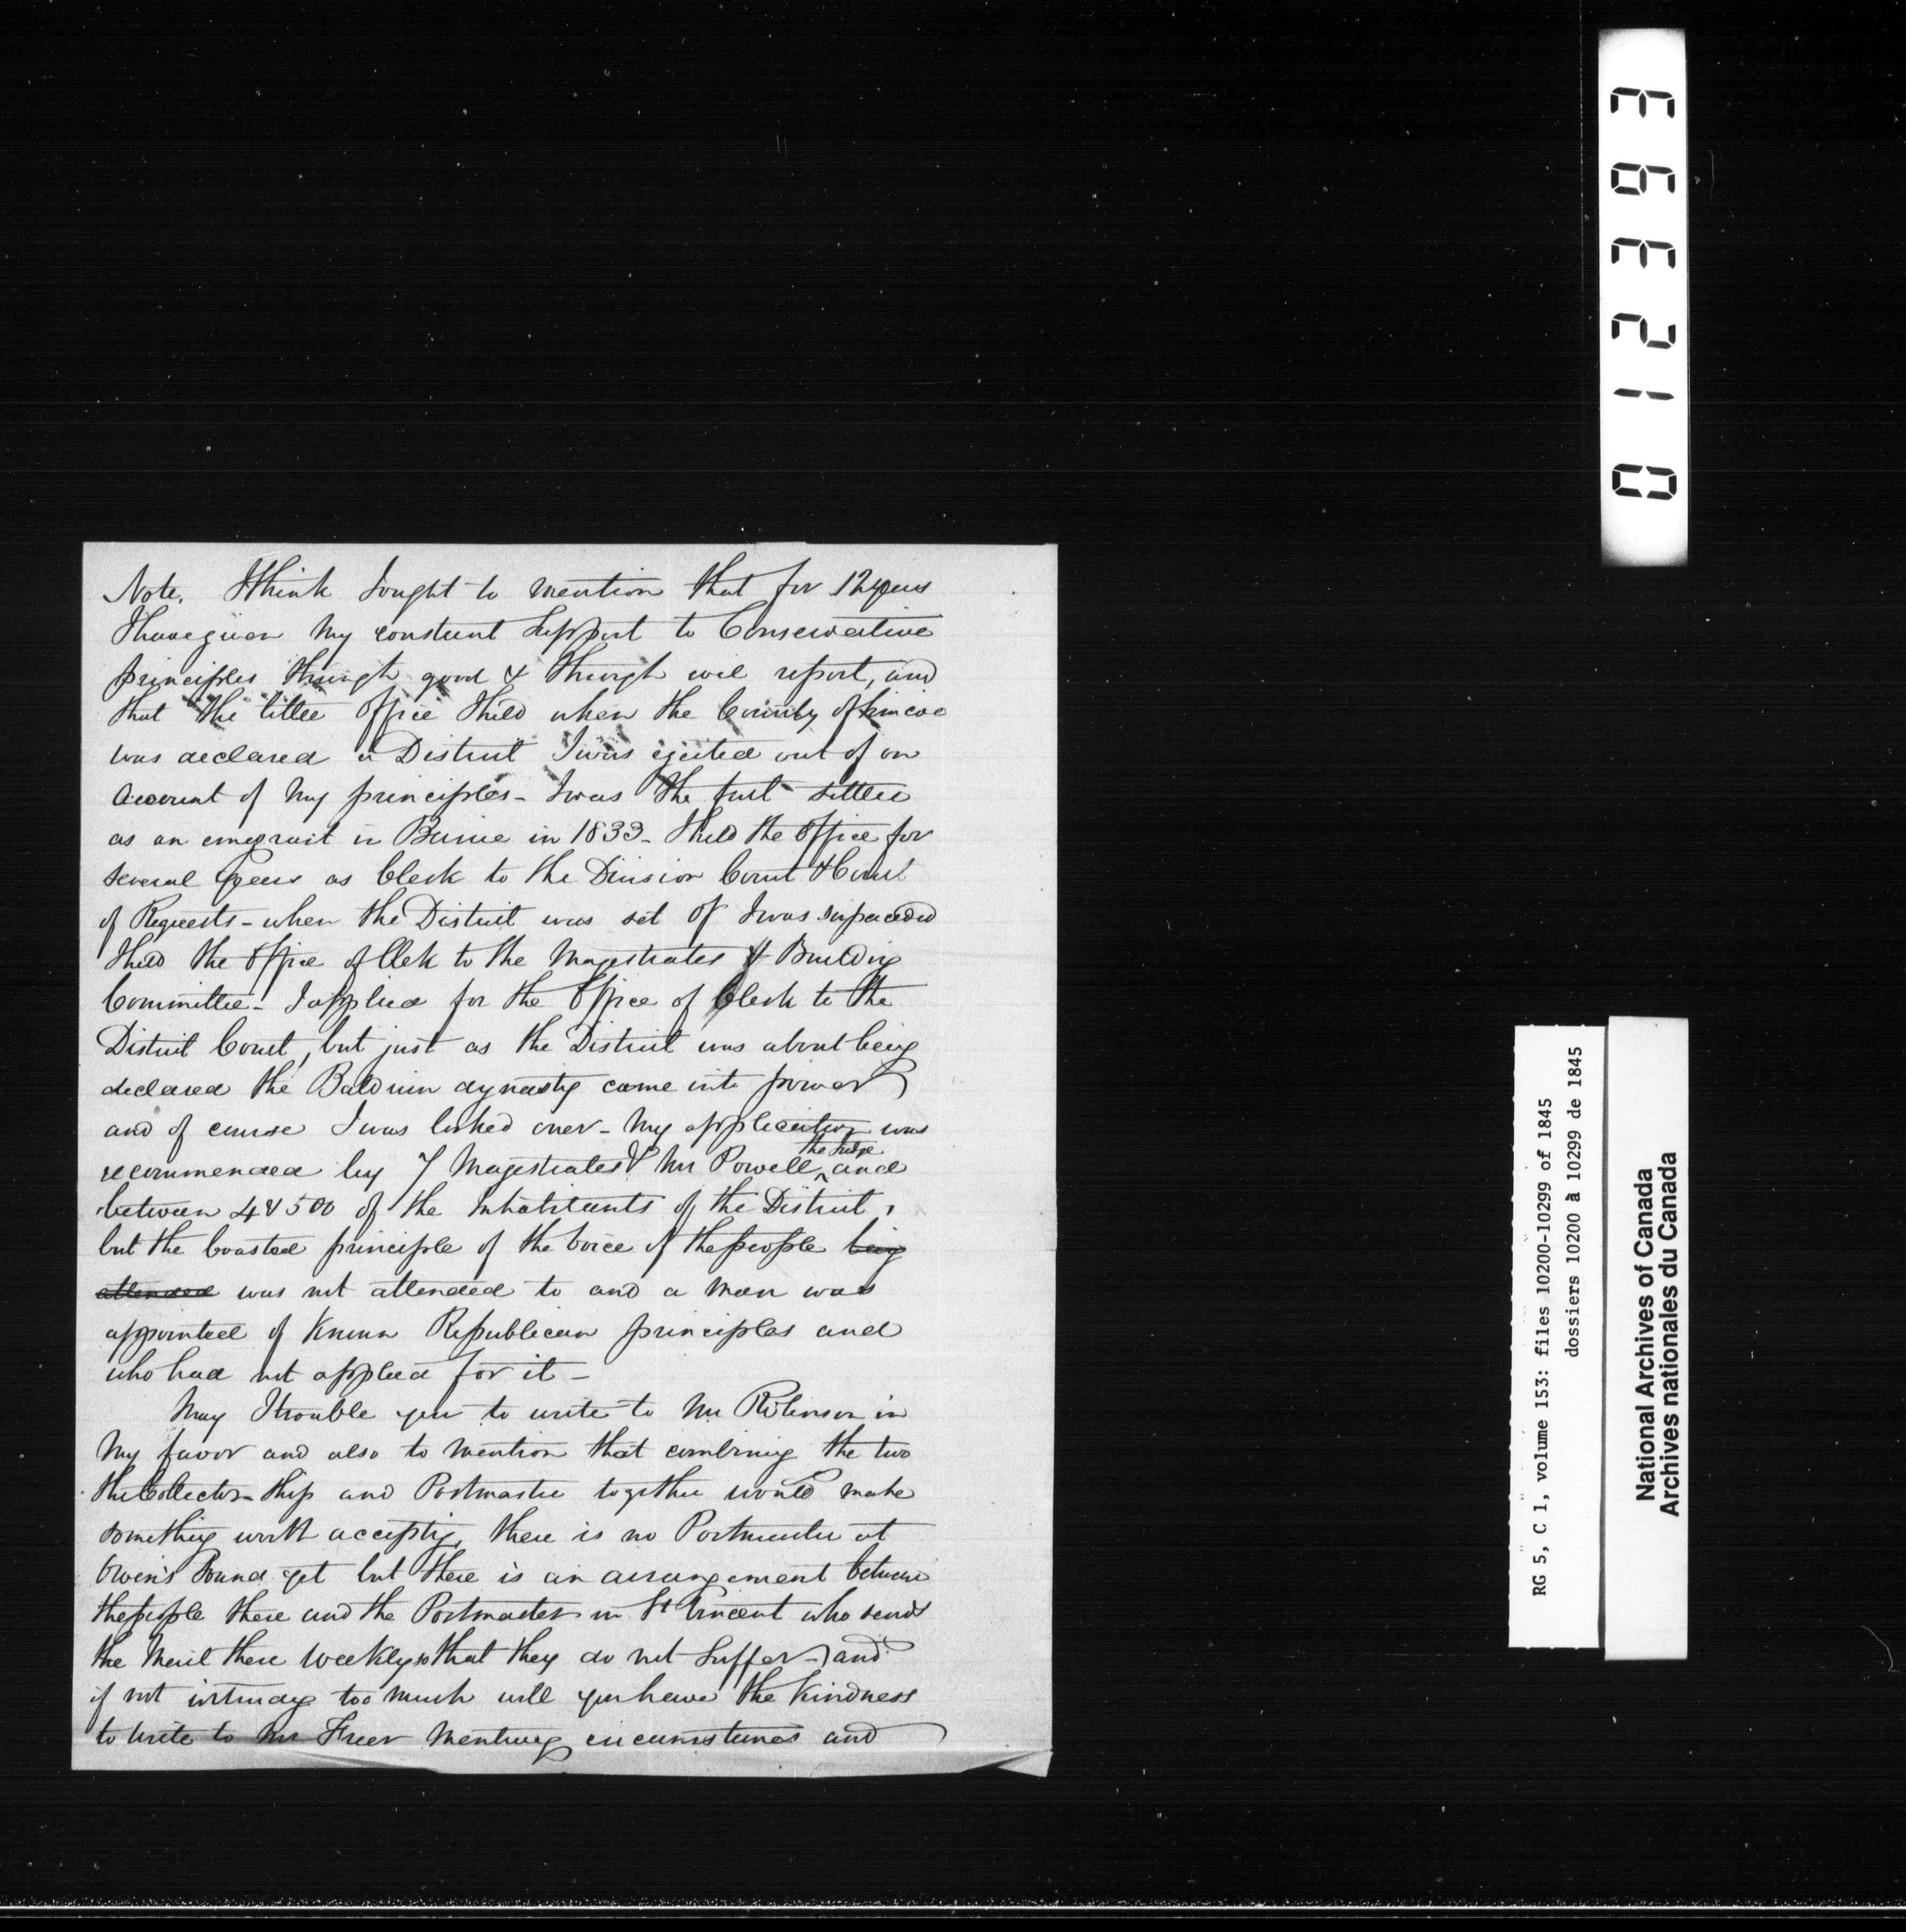 Note. I think I ought to mention that for 12 years
I have given my constant support to Conservative
principles through good & through evil report, and
that the little Office I held when the County of Simcoe
was declared a District I was ejected out of on
account of my principles - I was the first settler
as an emigrant in Barrie in 1833 - I held the Office for
several years as Clerk to the Division Court & Court
of Requests - when the District was set of I was superceded
I held the Office of Clerk to the Magistrates & Building
Committee - I applied for the Office of Clerk to the
District Court, but just as the District was about being
declared the Baldwin dynasty came into power
and of course I was looked over - My application was
recommended by 7 Magistrates & Mr Powell the Judge and
between 4 & 500 of the Inhabitants of the District,
but the boasted principle of the voice of the people being
attended was not attended to and a man was
appointed of known Republican principles and
who had not applied for it -
May I trouble you to write to Mr Robinson in
my favor and also to mention that combining the two
the Collector-ship and Postmaster together would make
something worth accepting, there is no Postmaster at
Owen's Sound yet but there is an arrangement between
the people there and the Postmaster in St Vincent who sends
the Mail there weekly so that they do not suffer - and
if not intruding too much will you have the kindness
to write to Mr Freer mentioning circumstances and
012393
RG 5, C 1, volume 153: files 10200-10299 of 1845
dossiers 10200 à 10299 de 1845
National Archives of Canada
Archives nationales du Canada